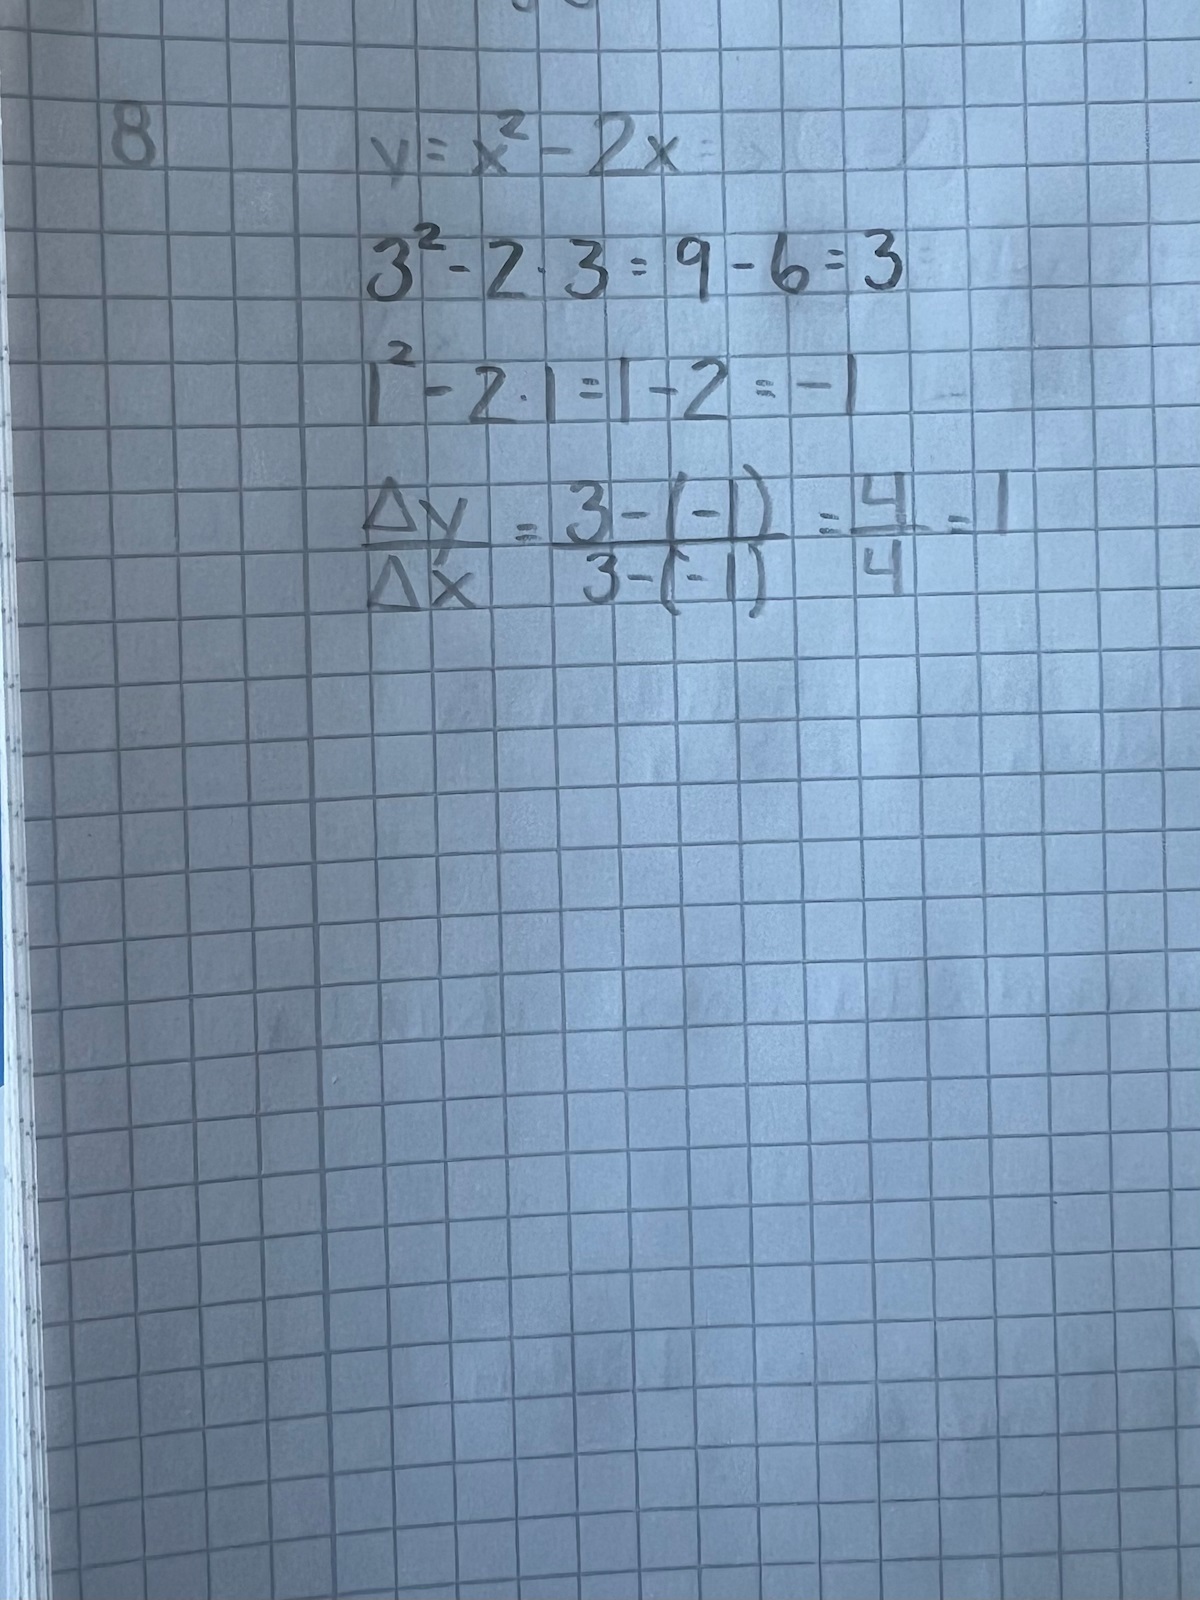 8 y = x² - 2x =
3² - 2 · 3 = 9 - 6 = 3
1² - 2 · 1 = 1 - 2 = -1
Δy/Δx = (3 - (-1))/(3 - (-1)) = 4/4 = 1